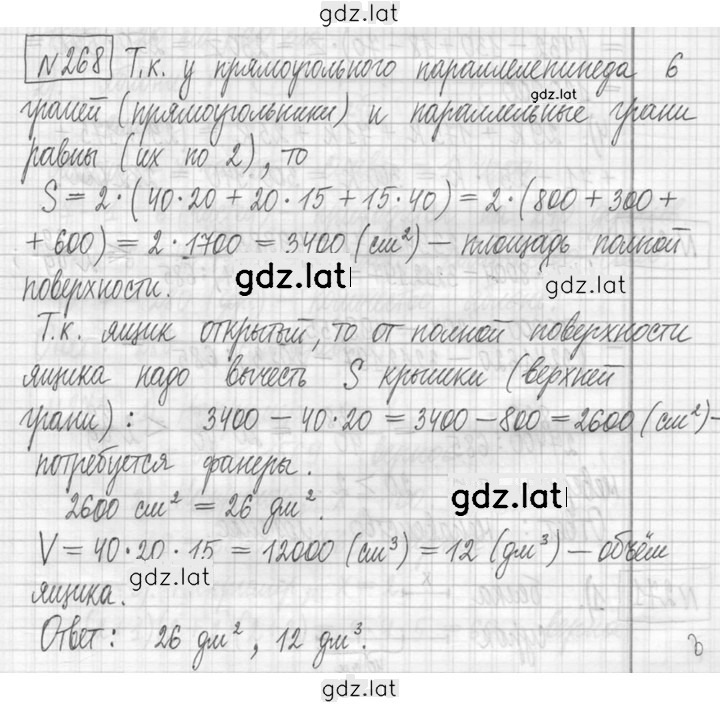 gdz.lat
№268 Т.к. у прямоугольного параллелепипеда 6
gdz.lat
граней (прямоугольники) и параллельные грани
равны (их по 2), то
S = 2·(40·20 + 20·15 + 15·40) = 2·(800 + 300 +
+ 600) = 2·1700 = 3400 (см²) – площадь полной
gdz.lat
gdz.lat
поверхности.
Т.к. ящик открытый, то от полной поверхности
ящика надо вычесть S крышки (верхней
грани): 3400 – 40·20 = 3400 – 800 = 2600 (см²) –
потребуется фанеры.
2600 см² = 26 дм².
gdz.lat
V = 40·20·15 = 12000 (см³) = 12 (дм³) – объём
gdz.lat
ящика.
Ответ: 26 дм², 12 дм³.
gdz.lat